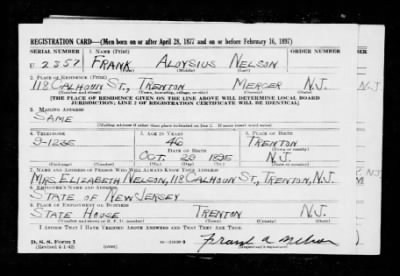 REGISTRATION CARD—(Men born on or after April 28, 1877 and on or before February 16, 1897)
SERIAL NUMBER 1. NAME (Print) ORDER NUMBER
U 2557 FRANK ALOYSIUS NELSON
(First) (Middle) (Last)
2. PLACE OF RESIDENCE (Print)
118 CALHOUN ST., TRENTON MERCER N.J.
(Number and street) (Town, township, village, or city) (County) (State)
[THE PLACE OF RESIDENCE GIVEN ON THE LINE ABOVE WILL DETERMINE LOCAL BOARD
JURISDICTION; LINE 2 OF REGISTRATION CERTIFICATE WILL BE IDENTICAL]
3. MAILING ADDRESS
SAME
[Mailing address if other than place indicated on line 2. If same insert word same]
4. TELEPHONE 5. AGE IN YEARS 6. PLACE OF BIRTH
46 TRENTON
DATE OF BIRTH
OCT. 28 1895 N.J.
7. NAME AND ADDRESS OF PERSON WHO WILL ALWAYS KNOW YOUR ADDRESS
MRS. ELIZABETH NELSON, 118 CALHOUN ST., TRENTON, N.J.
8. EMPLOYER'S NAME AND ADDRESS
STATE OF NEW JERSEY
9. PLACE OF EMPLOYMENT OR BUSINESS
STATE HOUSE TRENTON N.J.
(Number and street or R. F. D. number) (Town) (County) (State)
I AFFIRM THAT I HAVE VERIFIED ABOVE ANSWERS AND THAT THEY ARE TRUE.
D. S. S. Form 1
(Revised 4-1-42) (over) Frank A. Nelson